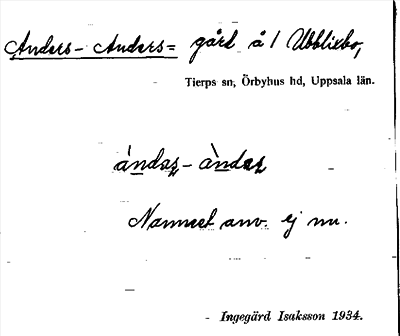 Anders-Anders= gård å 1 Ubblixbo,
Tierps sn, Örbyhus hd, Uppsala län.
ándaş-àndaş
Namnet anv. ej nu.
- Ingegärd Isaksson 1934.